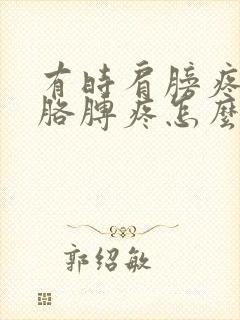 有時肩膀疼
胳膊疼怎麼
郭紹敏